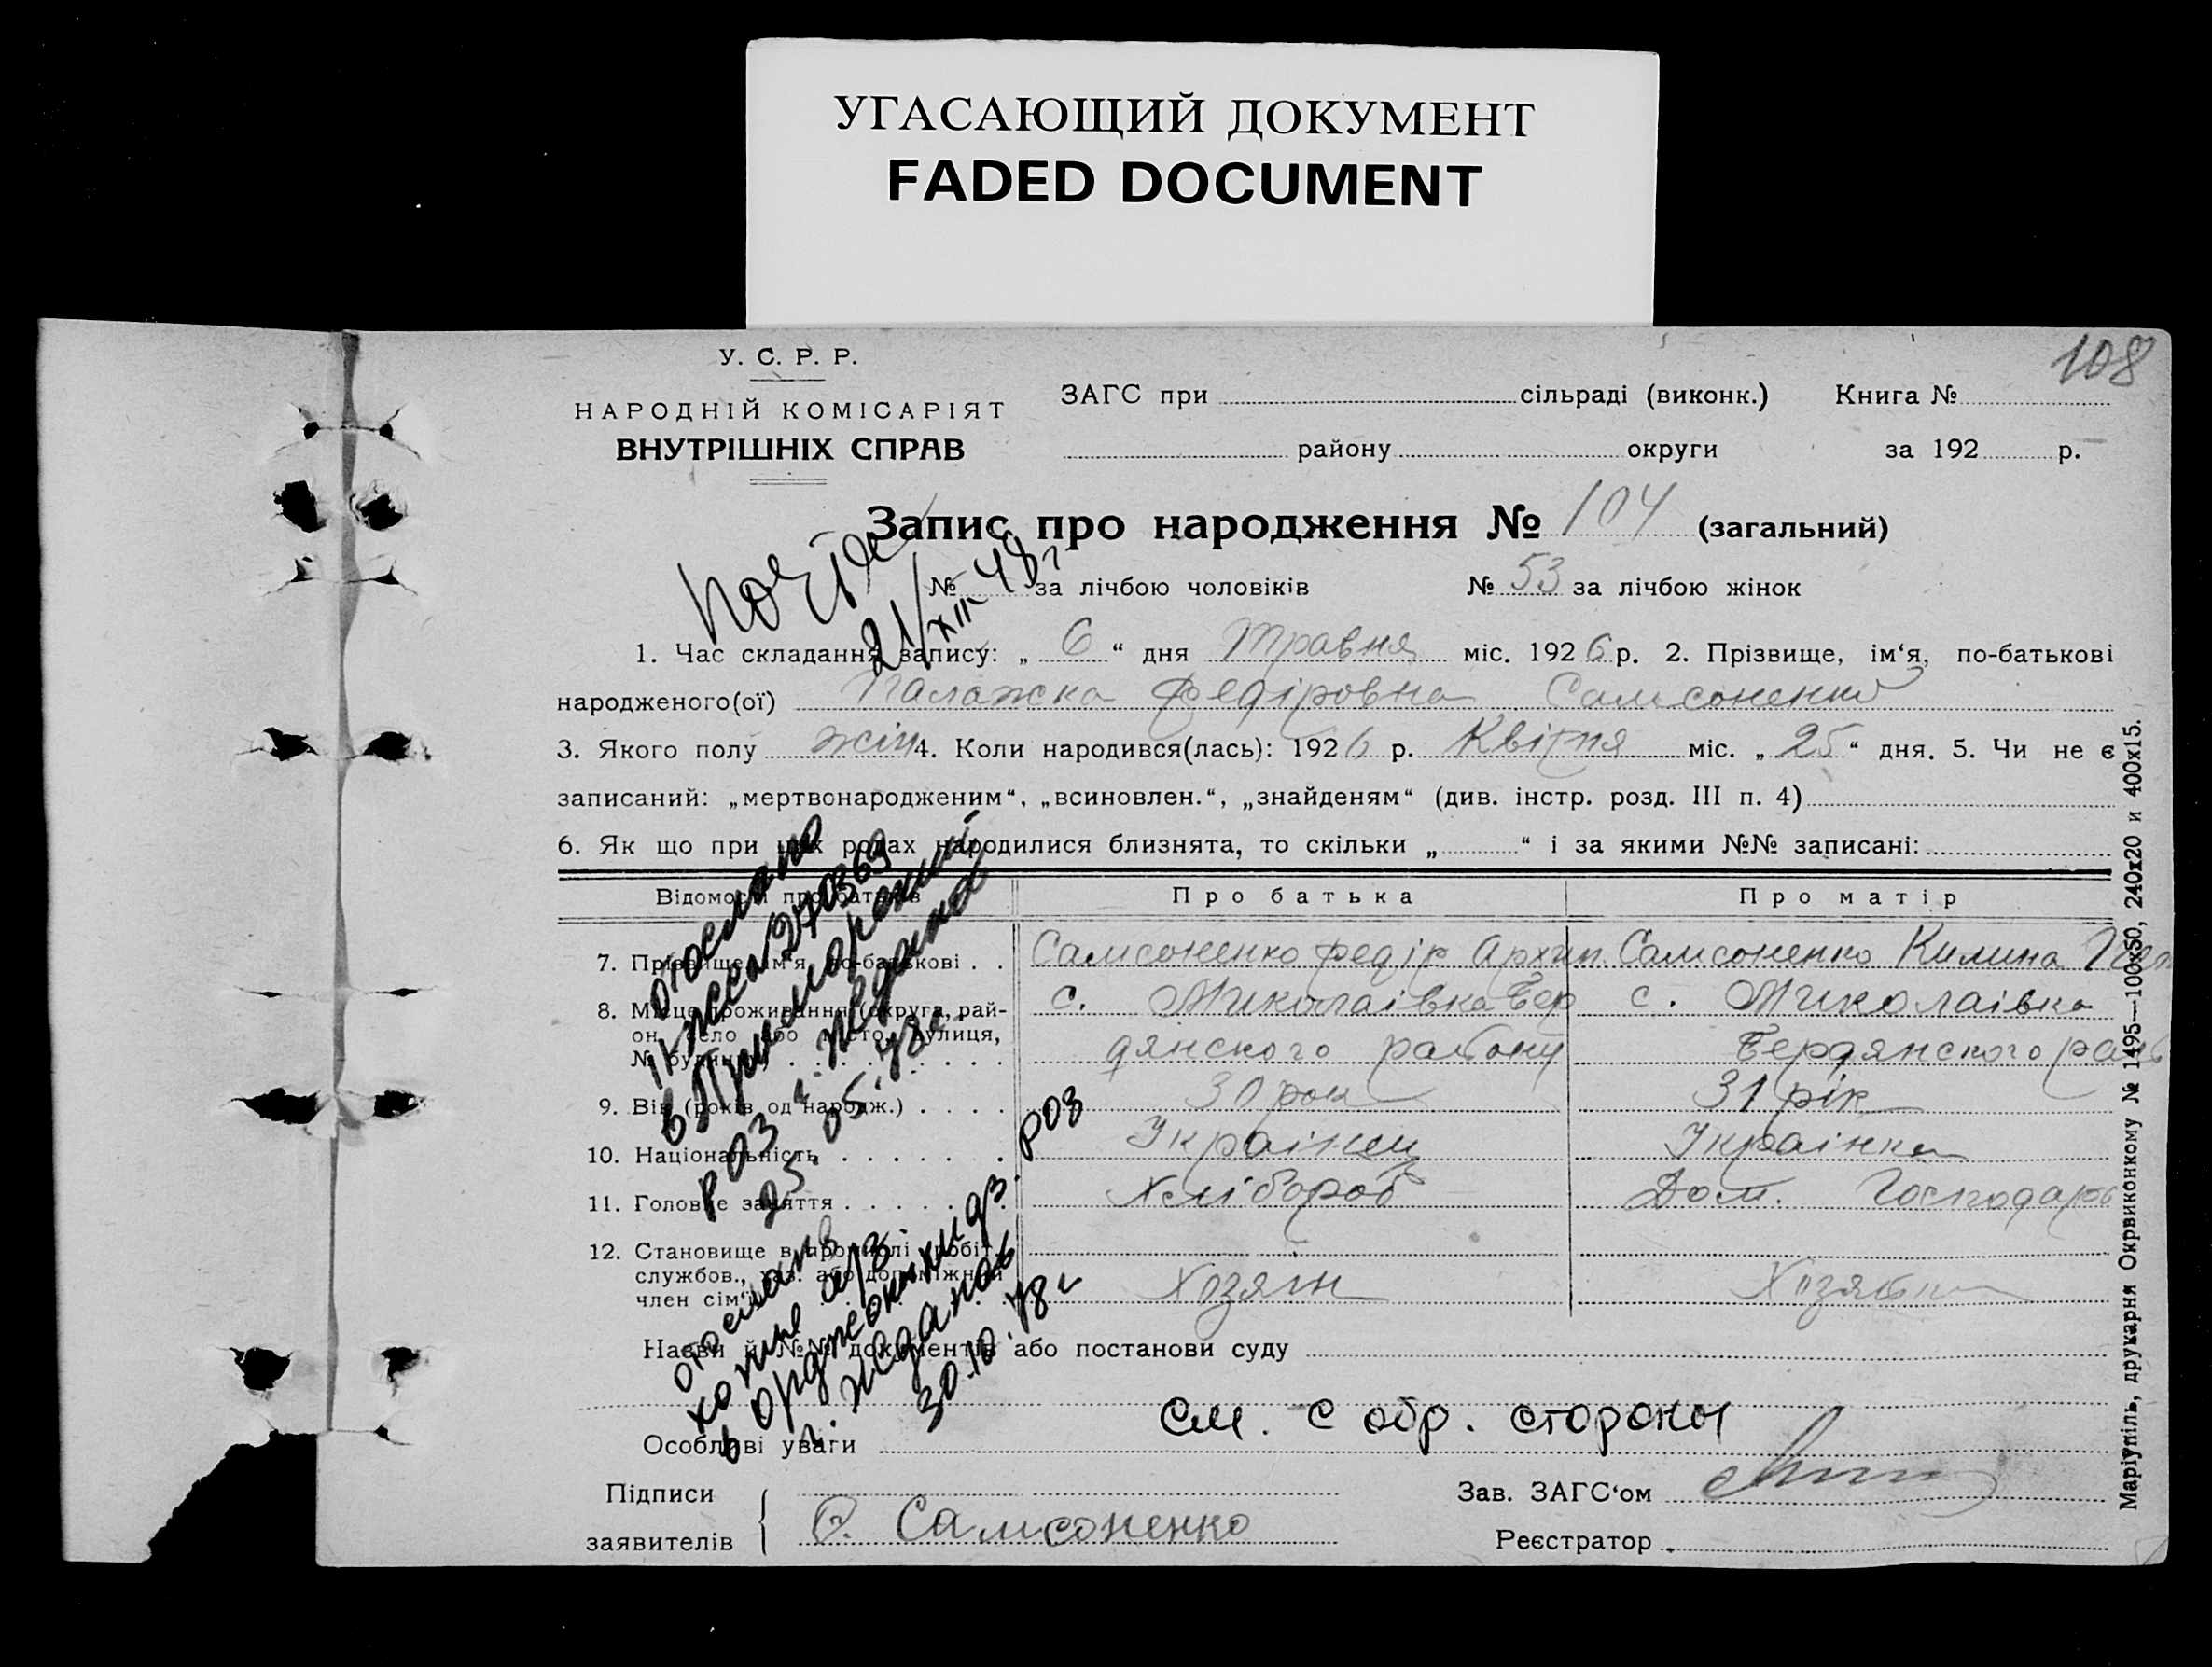 УГАСАЮЩИЙ ДОКУМЕНТ
FADED DOCUMENT
108
У. С. Р. Р.
НАРОДНІЙ КОМІСАРІЯТ
ВНУТРІШНІХ СПРАВ
ЗАГС при сільраді (виконк.) Книга №
району округи за 192 р.
Запис про народження № 104 (загальний)
№ за лічбою чоловіків № 53 за лічбою жінок
21/XII-48г
1. Час складання запису: „ 6 “ дня Травня міс. 1926 р. 2. Прізвище, ім‘я, по-батькові
народженого(ої) Палажка Федіровна Самсоненко
3. Якого полу жін 4. Коли народився(лась): 1926 р. Квітня міс. „ 25 “ дня. 5. Чи не є
записаний: „мертвонародженим“, „всиновлен.“, „знайденям“ (див. інстр. розд. III п. 4)
6. Як що при цих родах народилися близнята, то скільки „ “ і за якими №№ записані:
Відомости про батьків Про батька Про матір
7. Прізвище, ім‘я, по-батькові . . Самсоненко Федір Архип. Самсоненко Килина
8. Місце проживання (округа, рай- с. Миколаівка Бер с. Миколаівка
он, село або місто, вулиця,
№ будинку) . . . . . . . . . . дянского районy Бердянского рай
9. Вік (років од народж.) . . . . 30 рок 31 рік
10. Національність . . . . . . . Українец Українка
11. Головне заняття . . . . . . . Хлібороб Дом. Господарь
12. Становище в промислі (робіт.
службов., хаз. або допоміжний
член сім‘ї) Хозяін Хозяйка
Назви й №№ документів або постанови суду
Особливі уваги см. с обр. стороны
Підписи
заявителів Ф. Самсоненко
Зав. ЗАГС‘ом
Реєстратор
отослано
1к-жеа 270369
в Приморский
РОЗ г. Жданов
25. 05. 78г.
отослано
в Орджоникидз. РОЗ
г. Жданов
30.10.78г
Маріупіль, друкарня Окрвиконкому № 1495—100х50, 240х20 и 400х15.